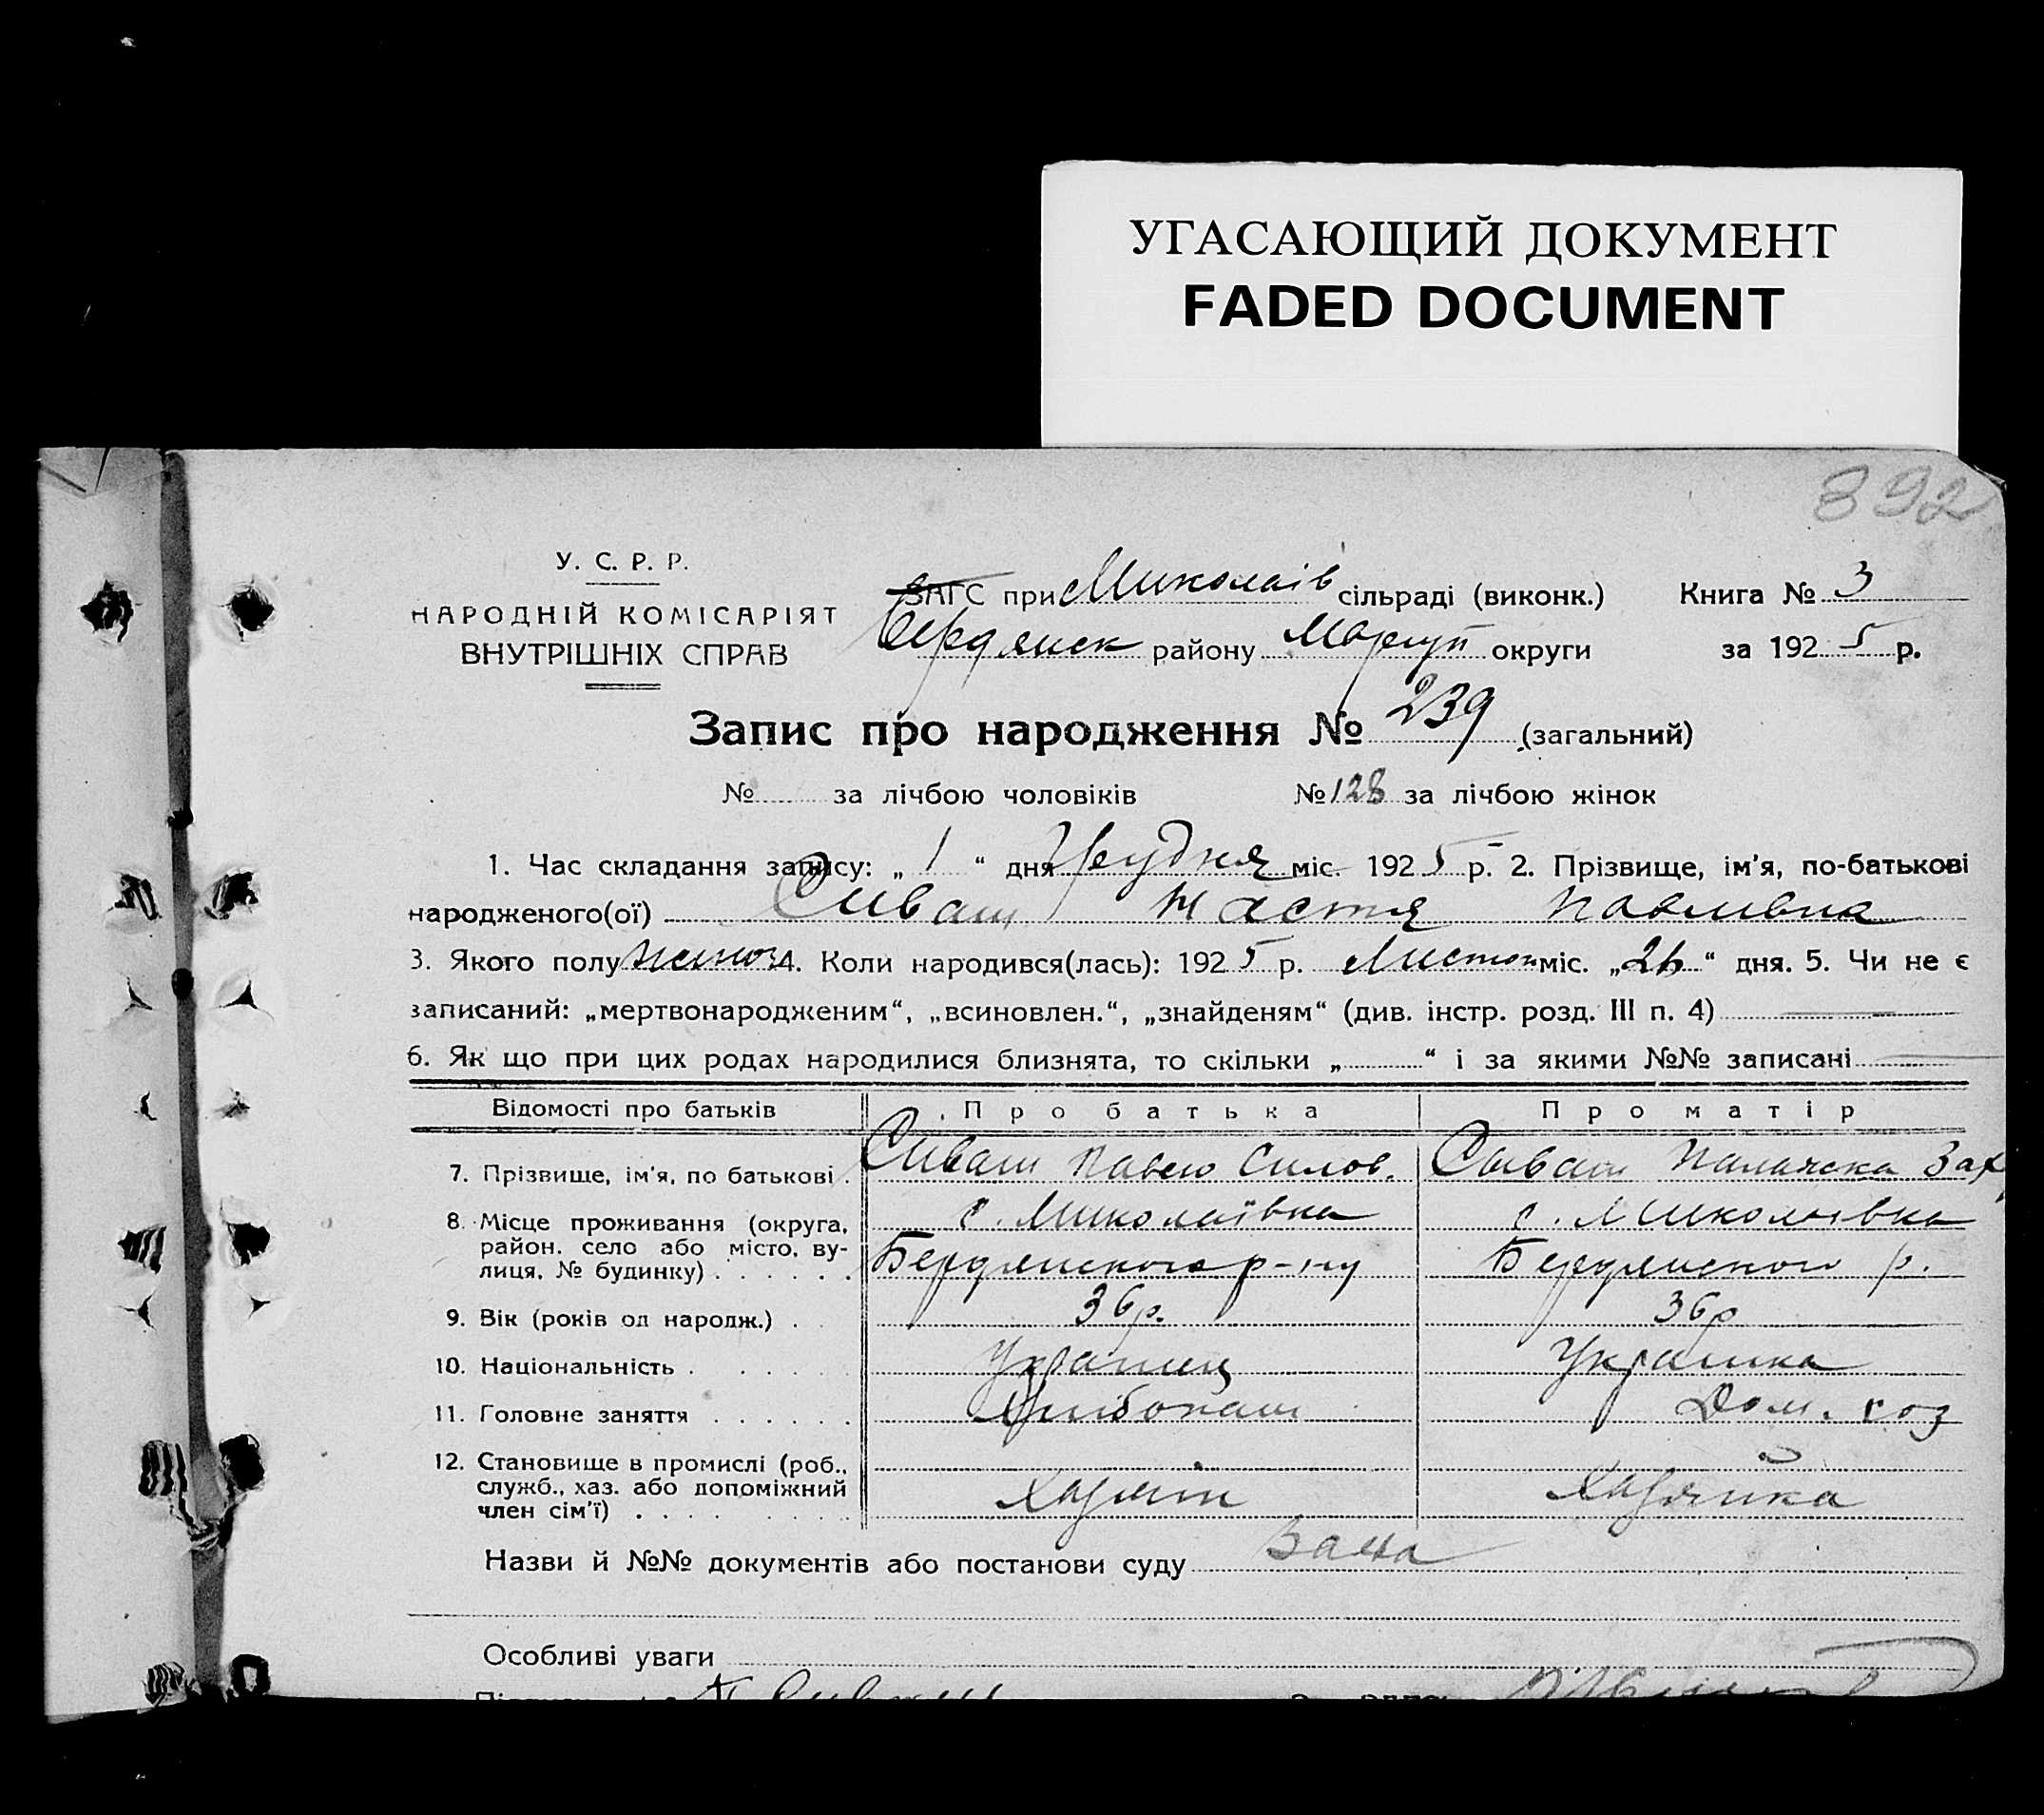 УГАСАЮЩИЙ ДОКУМЕНТ
FADED DOCUMENT
892
У. С. Р. Р.
НАРОДНІЙ КОМІСАРІЯТ
ВНУТРІШНІХ СПРАВ
ЗАГС при Миколаїв сільраді (виконк.) Книга № 3
Бердянск району Маріуп округи за 1925 р.
Запис про народження № 239 (загальний)
№ за лічбою чоловіків № 128 за лічбою жінок
1. Час складання запису: „ 1 “ дня Грудня міс. 1925 р. 2. Прізвище, ім’я, по-батькові
народженого(ої) Сиваш Настя Павлівна
3. Якого полу жіноч 4. Коли народився(лась): 1925 р. Листоп міс. „26“ дня. 5. Чи не є
записаний: „мертвонародженим“, „всиновлен.“, „знайденям“ (див. інстр. розд. III п. 4)
6. Як що при цих родах народилися близнята, то скільки „ “ і за якими №№ записані
Відомості про батьків Про батька Про матір
7. Прізвище, ім’я, по батькові . Сиваш Павло Силов. Сиваш Палажка Зах
8. Місце проживання (округа, с. Миколаївка с. Миколаївка
район. село або місто, ву-
лиця, № будинку) . . . . . . Бердянського р-ну Бердянского р.
9. Вік (років од народж.) . 36 р. 36 р
10. Національність . . . . . Українец Українка
11. Головне заняття . . . . . . Хлібопаш Дом. хоз
12. Становище в промислі (роб.,
служб., хаз. або допоміжний Хазяїн Хазяйка
член сім’ї) . . . .
Назви й №№ документів або постанови суду
Особливі уваги